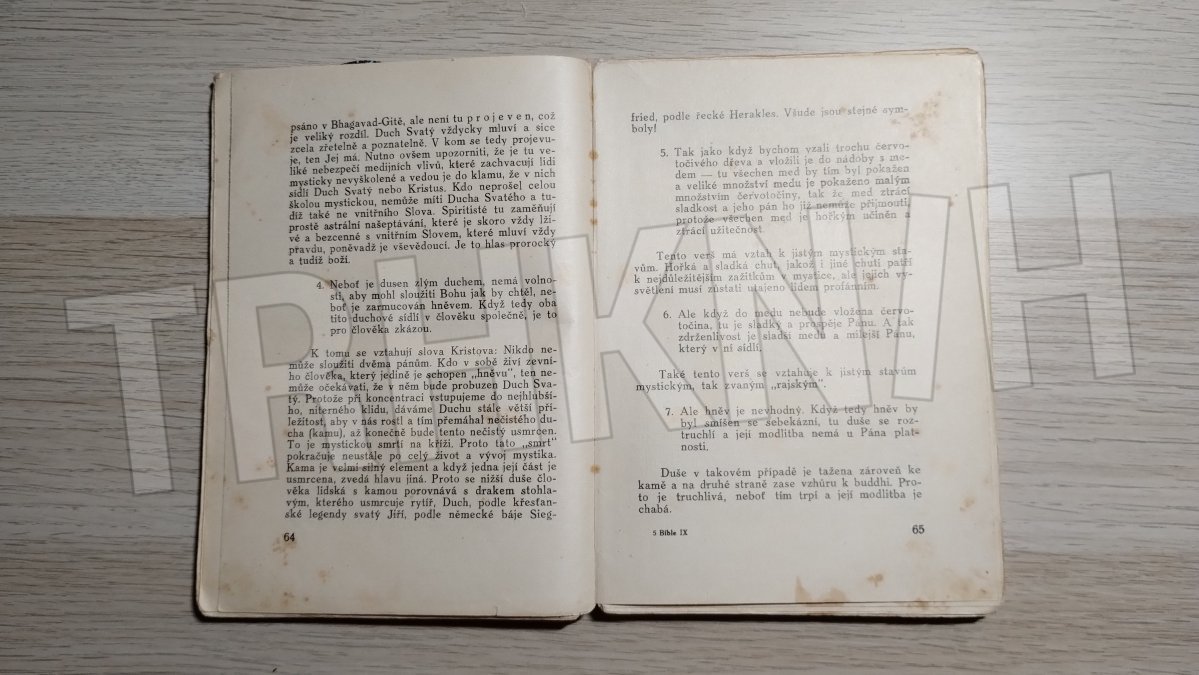 psáno v Bhagavad-Gítě, ale není tu p r o j e v e n, což
je veliký rozdíl. Duch Svatý vždycky mluví a sice
zcela zřetelně a poznatelně. V kom se tedy projevu-
je, ten Jej má. Nutno ovšem upozorniti, že je tu ve-
liké nebezpečí medijních vlivů, které zachvacují lidi
mysticky nevyškolené a vedou je do klamu, že v nich
sídlí Duch Svatý nebo Kristus. Kdo neprošel celou
školou mystickou, nemůže míti Ducha Svatého a tu-
díž také ne vnitřního Slova. Spiritisté tu zaměňují
prostě astrální našeptávání, které je skoro vždy lži-
vé a bezcenné s vnitřním Slovem, které mluví vždy
pravdu, poněvadž je vševědoucí. Je to hlas prorocký
a tudíž boží.
4. Neboť je dusen zlým duchem, nemá volno-
sti, aby mohl sloužiti Bohu jak by chtěl, ne-
boť je zarmucován hněvem. Když tedy oba
tito duchové sídlí v člověku společně, je to
pro člověka zkázou.
K tomu se vztahují slova Kristova: Nikdo ne-
může sloužiti dvěma pánům. Kdo v sobě živí zevní-
ho člověka, který jedině je schopen „hněvu“, ten ne-
může očekávati, že v něm bude probuzen Duch Sva-
tý. Protože při koncentraci vstupujeme do nejhlubší-
ho, niterného klidu, dáváme Duchu stále větší pří-
ležitost, aby v nás rostl a tím přemáhal nečistého du-
cha (kamu), až konečně bude tento nečistý usmrcen.
To je mystickou smrtí na kříži. Proto tato „smrt“
pokračuje neustále po celý život a vývoj mystika.
Kama je velmi silný element a když jedna její část je
usmrcena, zvedá hlavu jiná. Proto se nižší duše člo-
věka lidská s kamou porovnává s drakem stohla-
vým, kterého usmrcuje rytíř, Duch, podle křesťan-
ské legendy svatý Jiří, podle německé báje Sieg-
64
fried, podle řecké Herakles. Všude jsou stejné sym-
boly!
5. Tak jako když bychom vzali trochu červo-
točivého dřeva a vložili je do nádoby s me-
dem — tu všechen med by tím byl pokažen
a veliké množství medu je pokaženo malým
množstvím červotočiny, tak že med ztrácí
sladkost a jeho pán ho již nemůže přijmouti,
protože všechen med je hořkým učiněn a
ztrácí užitečnost.
Tento verš má vztah k jistým mystickým sta-
vům. Hořká a sladká chuť, jakož i jiné chuti patří
k nejdůležitějším zážitkům v mystice, ale jejich vy-
světlení musí zůstati utajeno lidem profánním.
6. Ale když do medu nebude vložena červo-
točina, tu je sladký a prospěje Pánu. A tak
zdrženlivost je sladší medu a milejší Pánu,
který v ní sídlí.
Také tento verš se vztahuje k jistým stavům
mystickým, tak zvaným „rajským“.
7. Ale hněv je nevhodný. Když tedy hněv by
byl smíšen se sebekázní, tu duše se roz-
truchlí a její modlitba nemá u Pána plat-
nosti.
Duše v takovém případě je tažena zároveň ke
kamě a na druhé straně zase vzhůru k buddhi. Pro-
to je truchlivá, neboť tím trpí a její modlitba je
chabá.
5 Bible IX
65
TRHKNIH